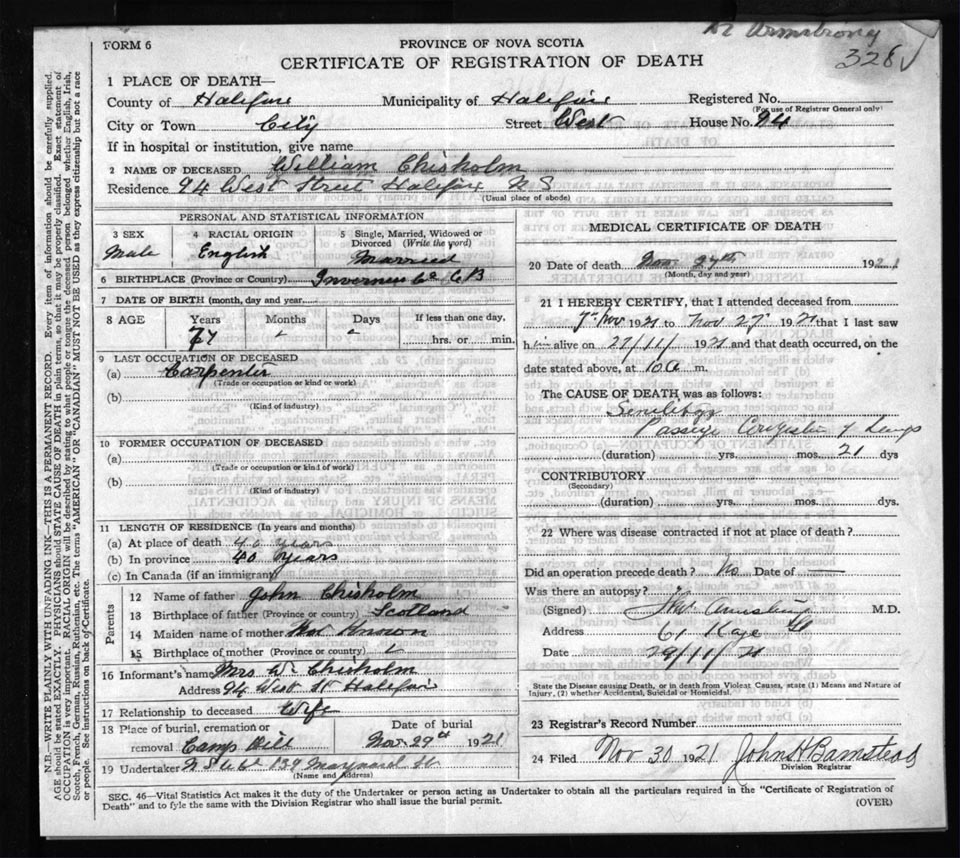 Dr Armstrong
328
FORM 6
PROVINCE OF NOVA SCOTIA
CERTIFICATE OF REGISTRATION OF DEATH
1 PLACE OF DEATH—
County of Halifax Municipality of Halifax Registered No.
(For use of Registrar General only)
City or Town City Street West House No. 94
If in hospital or institution, give name
2 NAME OF DECEASED William Chisholm
Residence 94 West Street Halifax N S
(Usual place of abode)
PERSONAL AND STATISTICAL INFORMATION
3 SEX
Male
4 RACIAL ORIGIN
English
5 Single, Married, Widowed or
Divorced (Write the word)
Married
6 BIRTHPLACE (Province or Country) Inverness Co C B
7 DATE OF BIRTH (month, day and year)
8 AGE Years Months Days If less than one day,
77 hrs. or min.
9 LAST OCCUPATION OF DECEASED
(a) Carpenter
(Trade or occupation or kind or work)
(b)
(Kind of industry)
10 FORMER OCCUPATION OF DECEASED
(a)
(Trade or occupation or kind of work)
(b)
(Kind of industry)
11 LENGTH OF RESIDENCE (In years and months)
(a) At place of death 40 years
(b) In province 40 years
(c) In Canada (if an immigrant)
Parents
12 Name of father John Chisholm
13 Birthplace of father (Province or country) Scotland
14 Maiden name of mother Not Known
15 Birthplace of mother (Province or country)
16 Informant's name Mrs W Chisholm
Address 94 West St Halifax
17 Relationship to deceased Wife
18 Place of burial, cremation or
removal Camp Hill
Date of burial
Nov 29th 1921
19 Undertaker 139 Maynard St
(Name and Address)
MEDICAL CERTIFICATE OF DEATH
20 Date of death Nov 27th 1921
(Month, day and year)
21 I HEREBY CERTIFY, that I attended deceased from
7th Nov 1921 to Nov 27 1921 that I last saw
him alive on 27/11/ 1921 and that death occurred, on the
date stated above, at 10 a m.
The CAUSE OF DEATH was as follows:
Senility
Passive Congestion of Lungs
(duration) yrs. mos. 21 dys
CONTRIBUTORY
(Secondary)
(duration) yrs. mos. dys.
22 Where was disease contracted if not at place of death?
Did an operation precede death? No Date of —
Was there an autopsy?
(Signed) Armstrong M.D.
Address 61 Kaye St
Date 29/11/21
State the Disease causing Death, or in death from Violent Causes, state (1) Means and Nature of
Injury, (2) whether Accidental, Suicidal or Homicidal.
23 Registrar's Record Number
24 Filed Nov 30 1921 John H Barnstead
Division Registrar
SEC. 46—Vital Statistics Act makes it the duty of the Undertaker or person acting as Undertaker to obtain all the particulars required in the "Certificate of Registration of
Death" and to fyle the same with the Division Registrar who shall issue the burial permit.
(OVER)
N.B.—WRITE PLAINLY WITH UNFADING INK—THIS IS A PERMANENT RECORD. Every item of information should be carefully supplied.
AGE should be stated EXACTLY. PHYSICIANS should STATE CAUSE OF DEATH in plain terms, so that it may be properly classified. Exact statement of
OCCUPATION is very important. RACIAL ORIGIN will be described by stating to what people or tongue the deceased person belonged whether English, Irish,
Scotch, French, German, Russian, Ruthenian, etc. The terms "AMERICAN" OR "CANADIAN" MUST NOT BE USED as they express citizenship but not a race
or people. See instructions on back of Certificate.